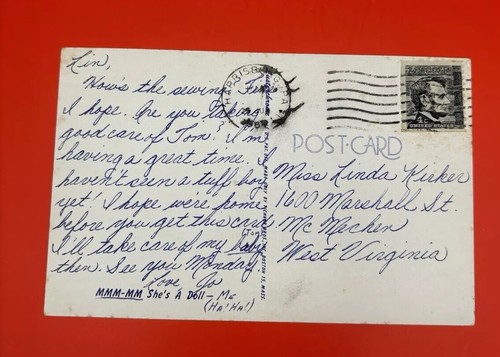 Lin,
How's the sewing. Fine
I hope. Are you taking
good care of Tom? I'm
having a great time.
haven't seen a tuff boy
yet! I hope we're home
before you get this card.
I'll take care of my
then. See you Monday.
Love, Jo
MMM-MM She's A Doll - Me
(HA! HA!)
HARRISBURG, PA.
POST-CARD
UNITED STATES
4
Miss Linda Kirker
1600 Marshall St.
Mc Mechen
West Virginia